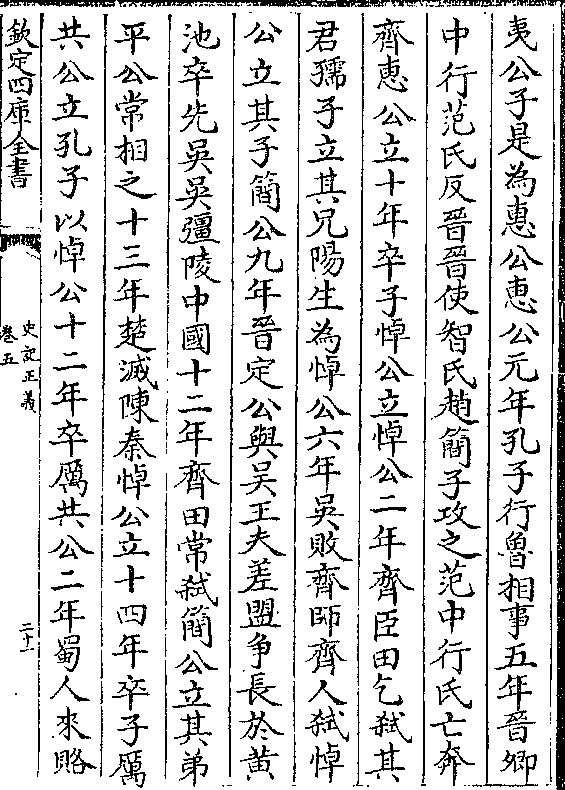 夷公子是為惠公惠公元年孔子行魯相事五年晉卿
中行范氏反晉晉使智氏趙簡子攻之范中行氏亡奔
齊惠公立十年卒子悼公立悼公二年齊臣田乞弑其
君孺子立其兄陽生為悼公六年吳敗齊師齊人弑悼
公立其子簡公九年晉定公與吳王夫差盟爭長於黃
池卒先吳吳彊陵中國十二年齊田常弑簡公立其弟
平公常相之十三年楚滅陳秦悼公立十四年卒子厲
共公立孔子以悼公十二年卒厲共公二年蜀人來賂
欽定四庫全書
史記正義
卷五
二十一